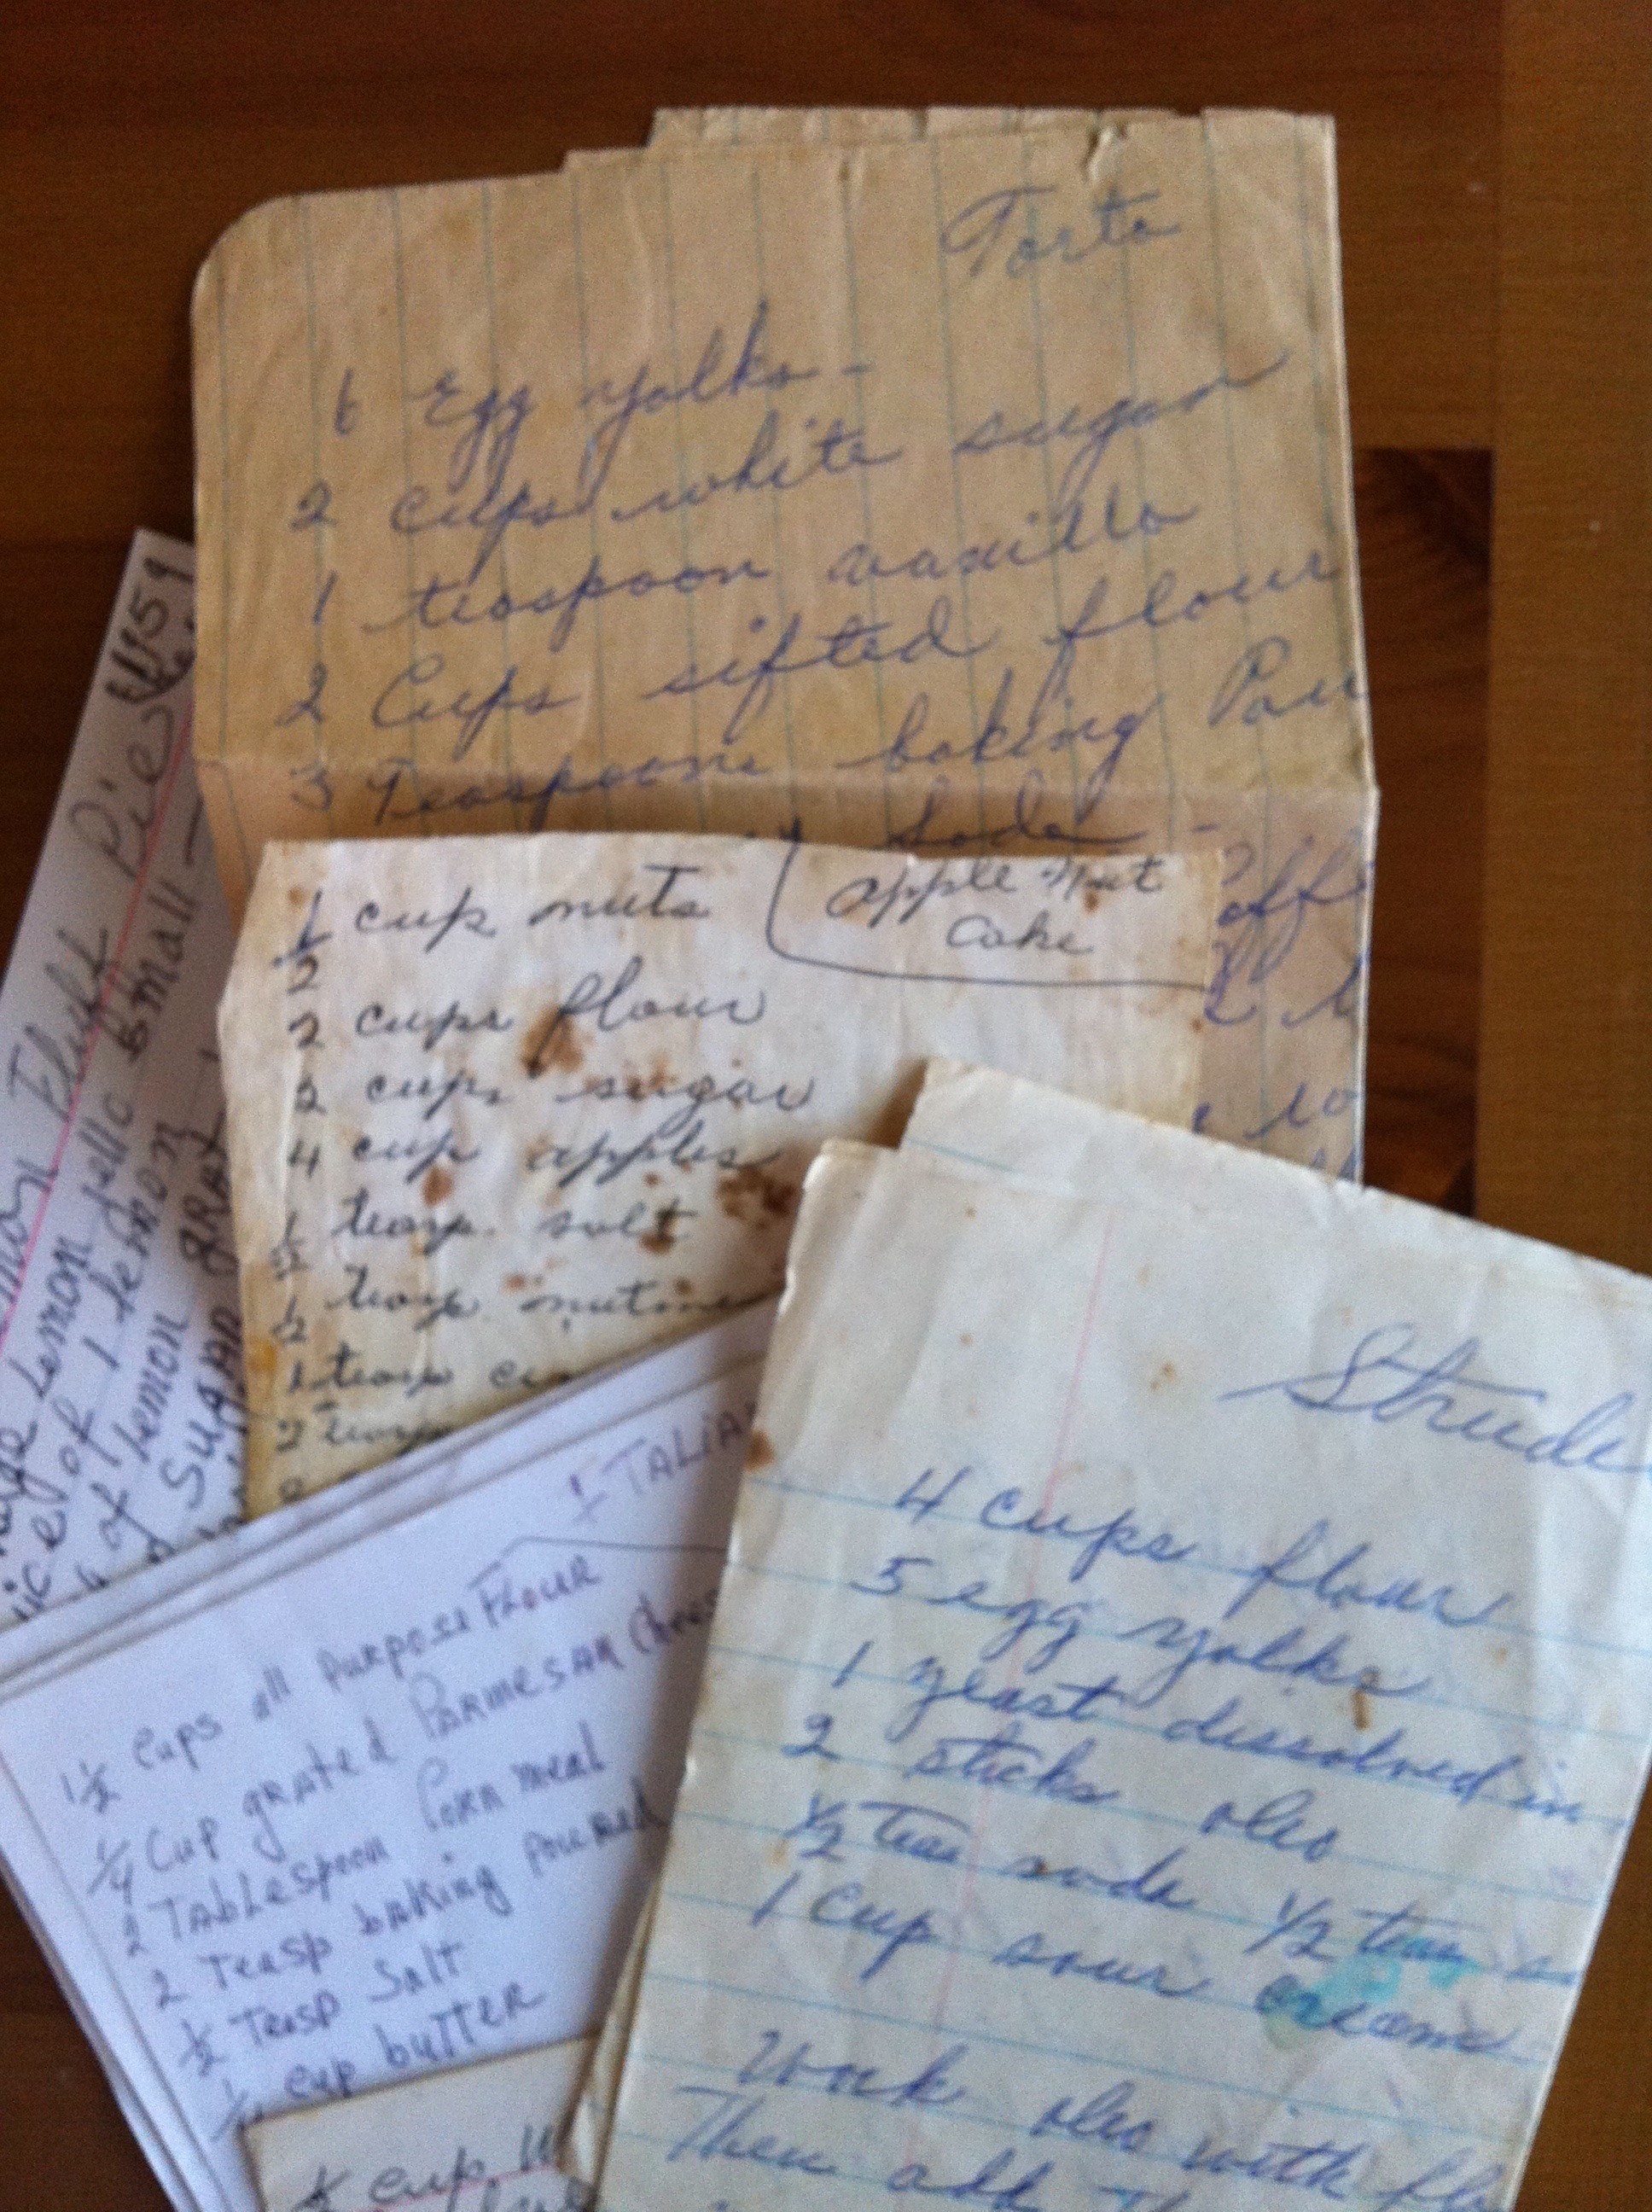 Torte
6 Egg yolks -
2 cups white sugar
1 teaspoon vanilla
2 Cups sifted flour
3 Teaspoons baking Pow
Soda -
Apple Nut
Cake
1/2 cup nuts
2 cups flour
2 cups sugar
4 cup apples
1/2 teasp. salt
1/2 teasp nutme
1 teasp
2 teasp
Fluff Pie
Lemon jello small -
of 1 lemon
of lemon
SUGAR
ITALIAN
1 1/2 cups all purpose FLOUR
1/4 Cup grated PARMESAN Chees
2 TABLESPOON CORN meal
2 Teasp baking powed
1/2 Teasp Salt
cup buTTER
Strude
4 cups flour
5 egg yolks
1 yeast dissolved in
2 sticks oleo
1/2 teas soda 1/2 teas s
1 Cup sour cream
Work oleo with fl
Then add
cup